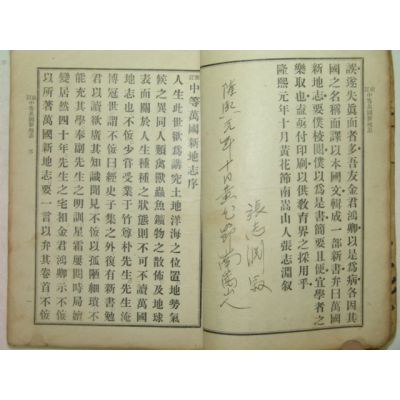 誤遂失眞面者多吾友金君鴻卿是以爲病各因其
國之名稱而譯以本國文輯成一部新書弁曰萬國
新地志要僕校閱以爲是書簡要且便宜學者之
樂取也亟付印刷以供教育界之採用乎
隆熙元年十月黃花節南嵩山人張志淵敘
張志淵敘
隆熙元年十月黃花節南嵩山人
新訂中等萬國新地志序
人生此世欲爲講究土地洋海之位置地勢氣
候之異同人類禽獸蟲魚鑛物之散佈及地球
表面關於人生種種之狀態則不可不讀萬國
地志也不佞少嘗受業于竹尊朴先生先生淹
博冠世謂不佞曰經史子集之外復有新書勉
君以讀欲廣其知識聞見不佞以孤陋細瑣不
能充其學奉副先生之明訓星霜屢閱時局嬗
變居然四十年先生之宅相金君鴻卿示不佞
以所著萬國新地志要一言以弁其卷首不佞